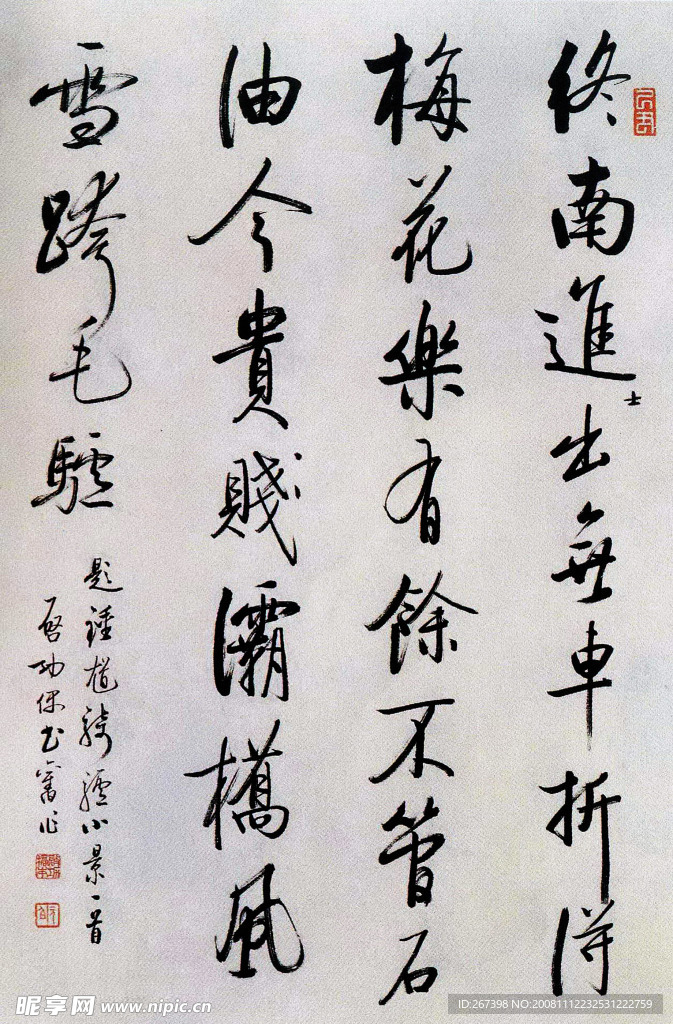 終南進士出無車折得
梅花樂有餘不管石
油今貴賤灞橋風
雪跨毛驢
題鍾馗騎驢小景一首
啓功書舊作
昵享网 www.nipic.cn
ID:267398 NO:20081112232531222759